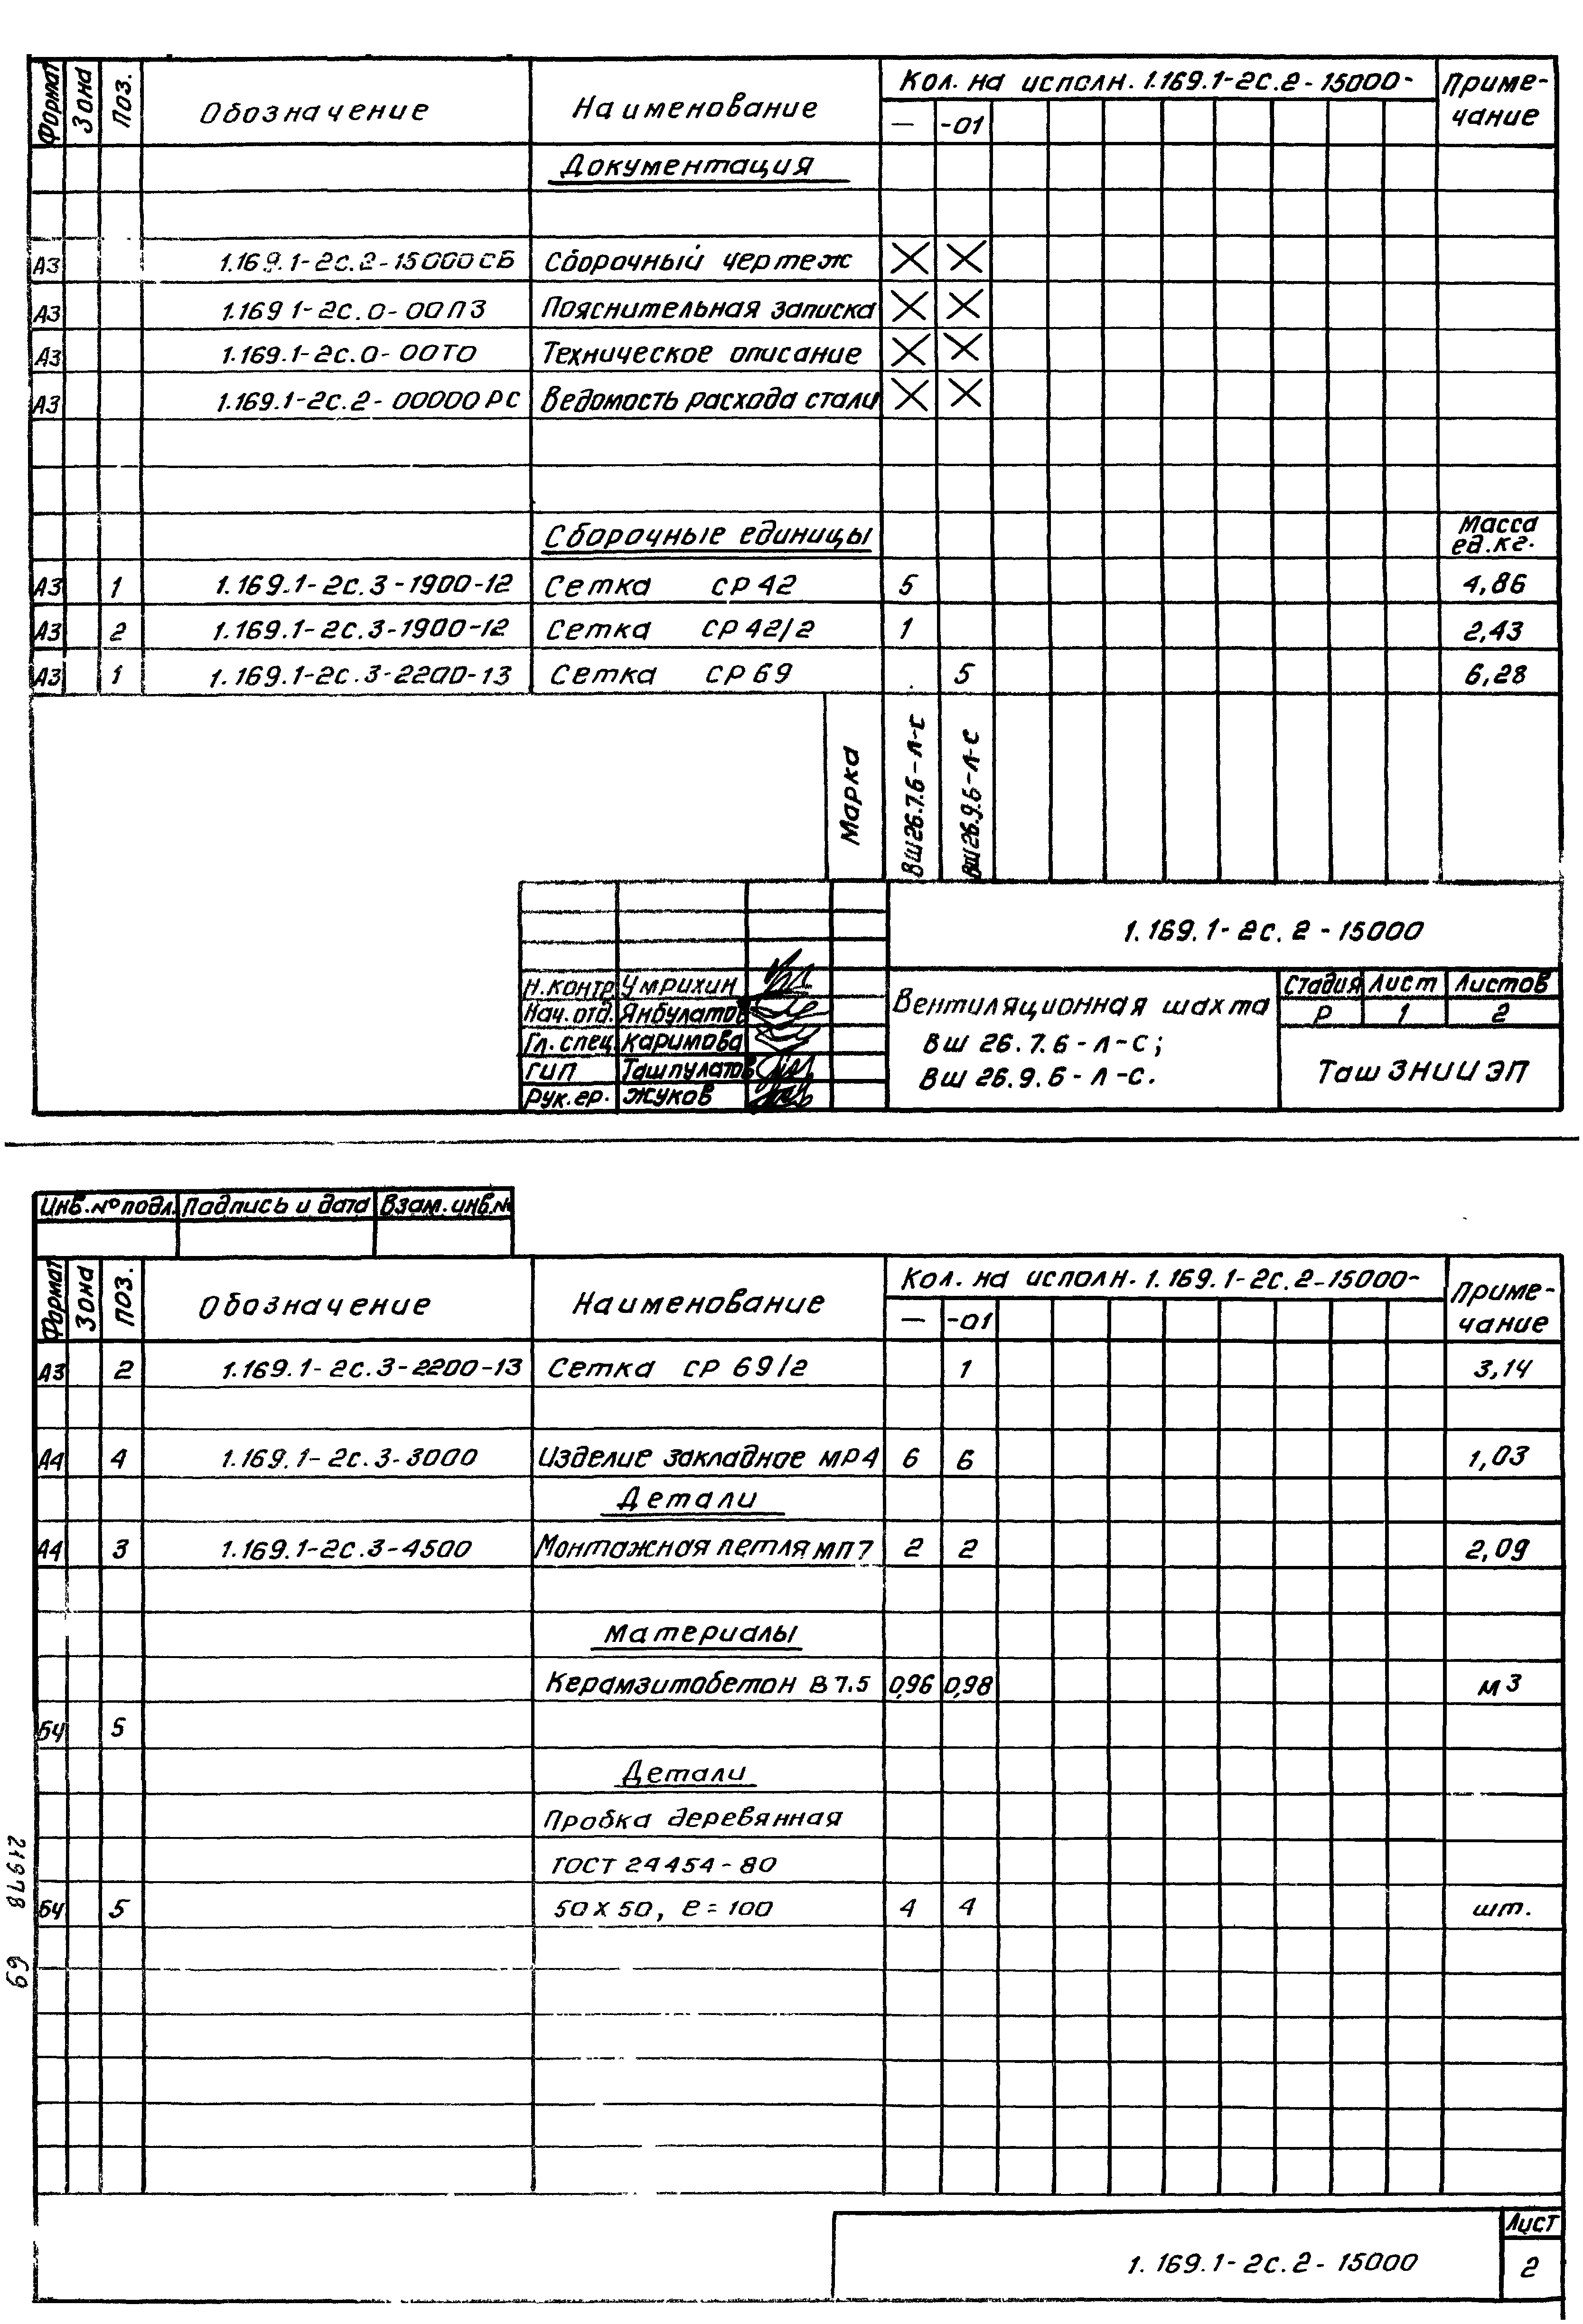 Формат Зона Поз. Обозначение Наименование Кол. на исполн. 1.169.1-2с.2-15000- Приме-
— -01 чание
Документация
А3 1.169.1-2с.2-15000СБ Сборочный чертеж X X
А3 1.169 1-2с.0-00ПЗ Пояснительная записка X X
А3 1.169.1-2с.0-00ТО Техническое описание X X
А3 1.169.1-2с.2-00000РС Ведомость расхода стали X X
Сборочные единицы Масса
ед.кг.
А3 1 1.169.1-2с.3-1900-12 Сетка СР42 5 4,86
А3 2 1.169.1-2с.3-1900-12 Сетка СР42/2 1 2,43
А3 1 1.169.1-2с.3-2200-13 Сетка СР69 5 6,28
Марка ВШ26.7.6-Л-С ВШ26.9.6-Л-С
1.169.1-2с.2-15000
Н.контр Умрихин
Нач.отд. Янбулатов
Гл.спец Каримова
ГИП Ташпулатов
Рук.гр. Жуков
Вентиляционная шахта
ВШ 26.7.6-Л-С;
ВШ 26.9.6-Л-С.
Стадия Лист Листов
Р 1 2
ТашЗНИИЭП
Инв.№подл. Падпись и дата Взам.инв.№
Формат Зона Поз. Обозначение Наименование Кол. на исполн. 1.169.1-2с.2-15000- Приме-
— -01 чание
А3 2 1.169.1-2с.3-2200-13 Сетка СР 69/2 1 3,14
А4 4 1.169.1-2с.3-3000 Изделие закладное МР4 6 6 1,03
Детали
А4 3 1.169.1-2с.3-4500 Монтажная петля МП7 2 2 2,09
Материалы
Керамзитобетон В7.5 0,96 0,98 м3
БЧ 5
Детали
Пробка деревянная
ГОСТ 24454-80
БЧ 5 50х50, ℓ=100 4 4 шт.
21978 69
1.169.1-2с.2-15000
Лист
2